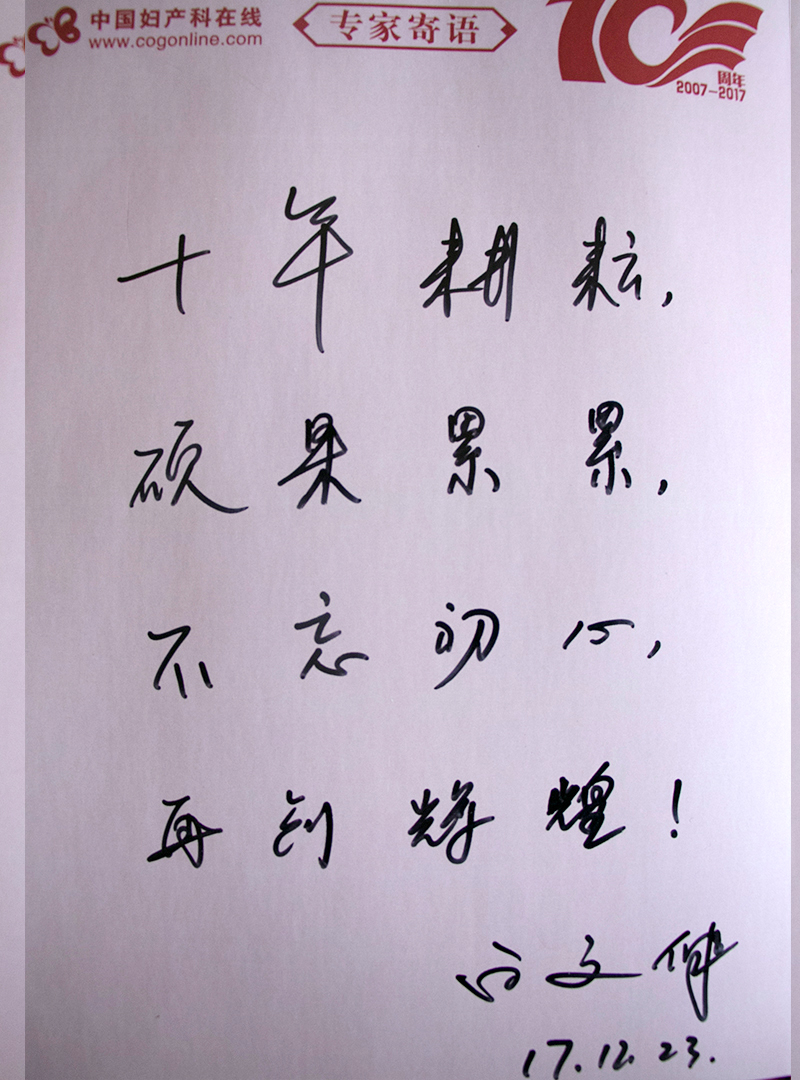 中国妇产科在线
www.cogonline.com
专家寄语
10
周年
2007-2017
十年耕耘,
硕果累累,
不忘初心,
再创辉煌!
白文佩
17.12.23.